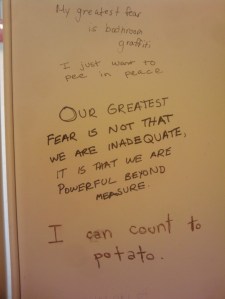 My greatest fear
is bathroom
graffiti
I just want to
pee in peace
OUR GREATEST
FEAR IS NOT THAT
WE ARE INADEQUATE,
IT IS THAT WE ARE
POWERFUL BEYOND
MEASURE.
I can count to
potato.